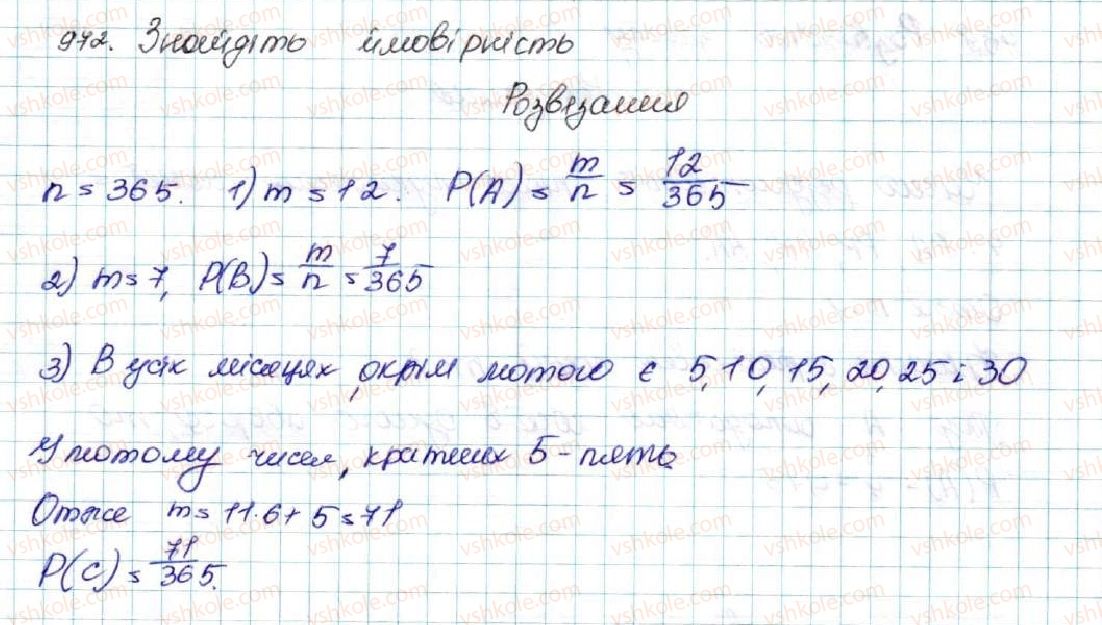 972. Знайдіть ймовірність
Розвязання
n = 365. 1) m = 12. P(A) = m/n = 12/365
2) m = 7, P(B) = m/n = 7/365
3) В усіх місяцях, окрім лютого є 5, 10, 15, 20, 25 і 30
У лютому чисел, кратних 5 - пять
Отже m = 11·6 + 5 = 71
P(C) = 71/365.